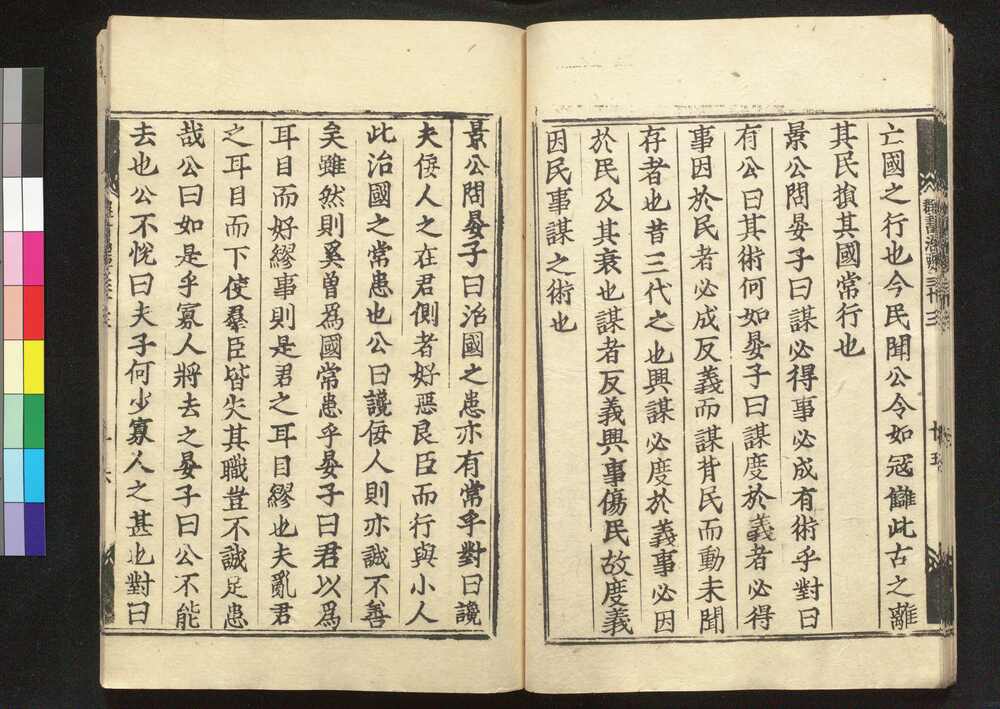 亡國之行也今民聞公令如冦讎此古之離
其民損其國常行也
景公問晏子曰謀必得事必成有術乎對曰
有公曰其術何如晏子曰謀度於義者必得
事因於民者必成反義而謀背民而動未聞
存者也昔三代之也興謀必度於義事必因
於民及其衰也謀者反義興事傷民故度義
因民事謀之術也
景公問晏子曰治國之患亦有常乎對曰讒
夫佞人之在君側者好惡良臣而行與小人
此治國之常患也公曰讒佞人則亦誠不善
矣雖然則奚曾爲國常患乎晏子曰君以爲
耳目而好繆事則是君之耳目繆也夫亂君
之耳目而下使羣臣皆失其職豈不誠足患
哉公曰如是乎寡人將去之晏子曰公不能
去也公不恱曰夫子何少寡人之甚也對曰